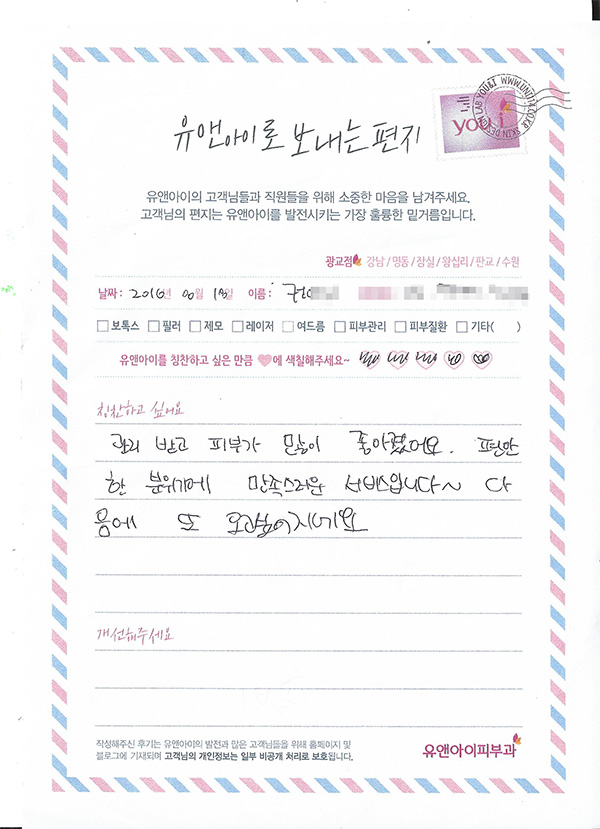 you&i
SKIN DESIGN LAB YOU&I WWW.UNI114.CO.KR
유앤아이로 보내는 편지
유앤아이의 고객님들과 직원들을 위해 소중한 마음을 남겨주세요.
고객님의 편지는 유앤아이를 발전시키는 가장 훌륭한 밑거름입니다.
광교점 강남 / 명동 / 잠실 / 왕십리 / 판교 / 수원
날짜 : 2016년 월 일 이름 :
보톡스 필러 제모 레이저 여드름 피부관리 피부질환 기타( )
유앤아이를 칭찬하고 싶은 만큼 에 색칠해주세요~
칭찬하고 싶어요
관리 받고 피부가 많이 좋아졌어요. 편안
한 분위기에 만족스러운 서비스입니다~ 다
음에 또 오고싶어지네요
개선해주세요
작성해주신 후기는 유앤아이의 발전과 많은 고객님들을 위해 홈페이지 및
블로그에 기재되며 고객님의 개인정보는 일부 비공개 처리로 보호됩니다.
유앤아이피부과